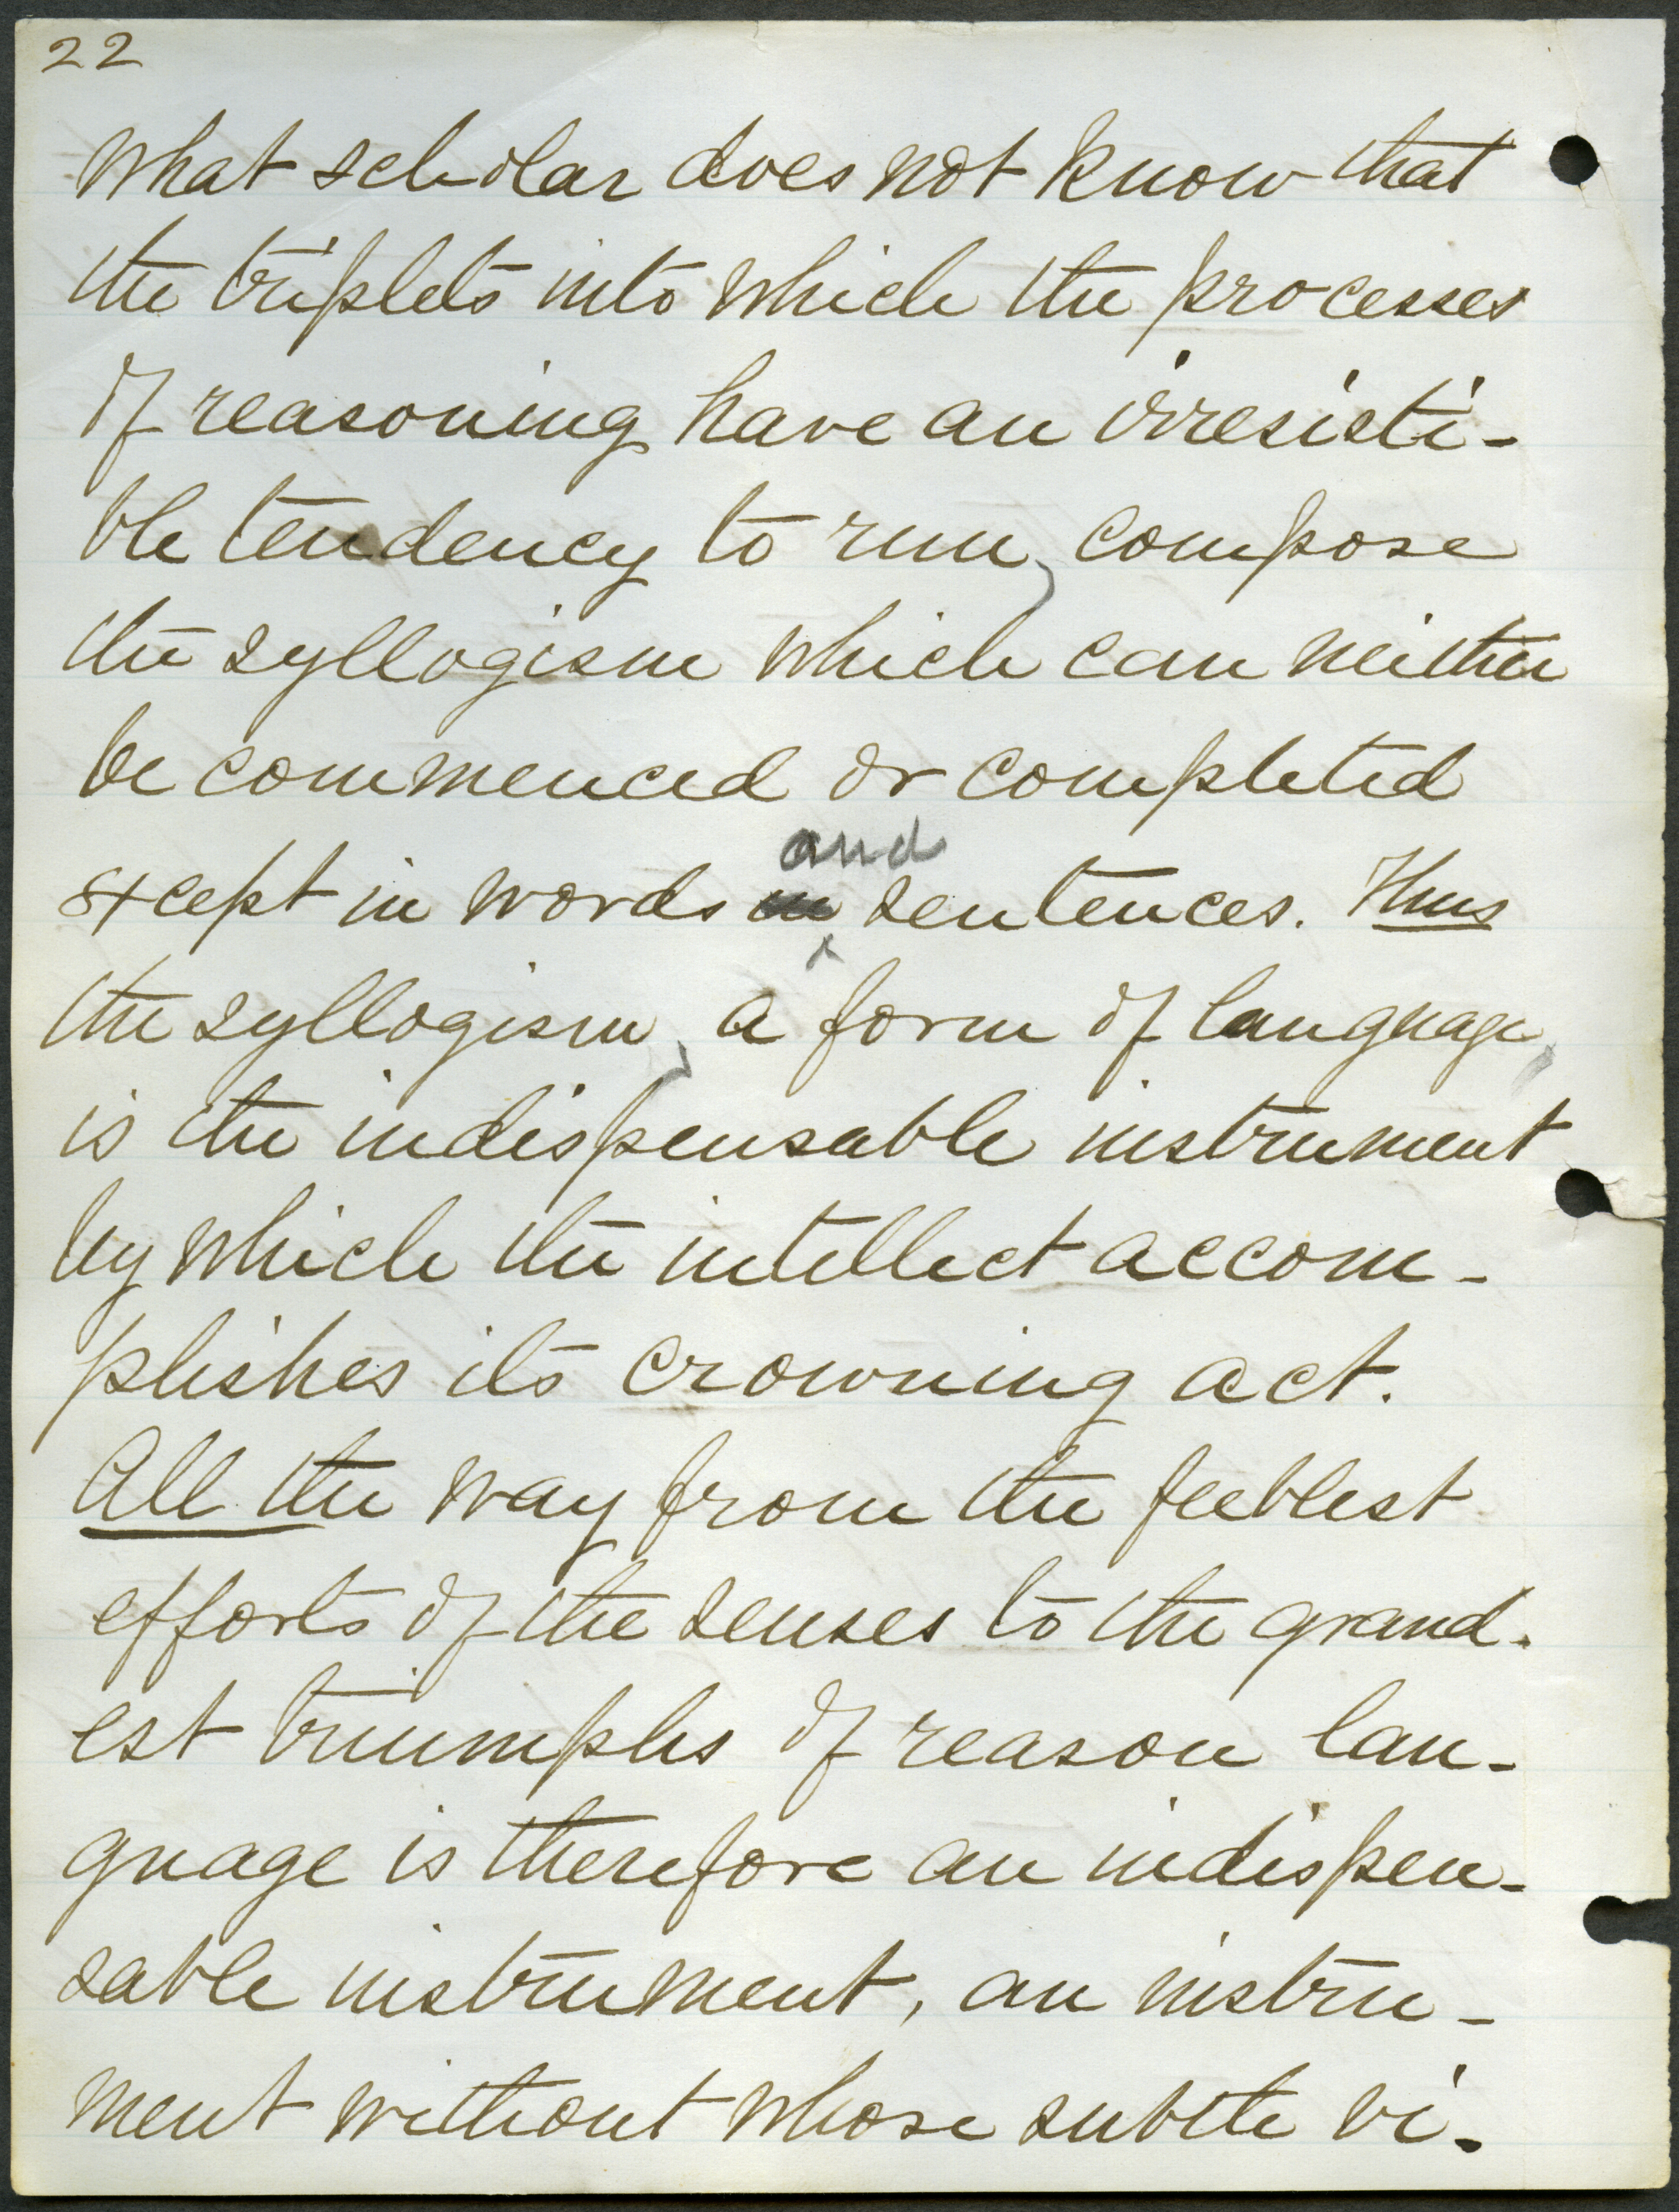 22
What scholar does not know that
the triplets into which the processes
of reasoning have an irresisti-
ble tendency to run, compose
the syllogism which can neither
be commenced or completed
and
except in words in sentences. Thus
the syllogism, a form of language,
is the indispensable instrument
by which the intellect accom-
plishes its crowning act.
All the way from the feeblest
efforts of the senses to the grand-
est triumphs of reason lan-
guage is therefore an indispen-
sable instrument, an instru-
ment without whose subtle vi-